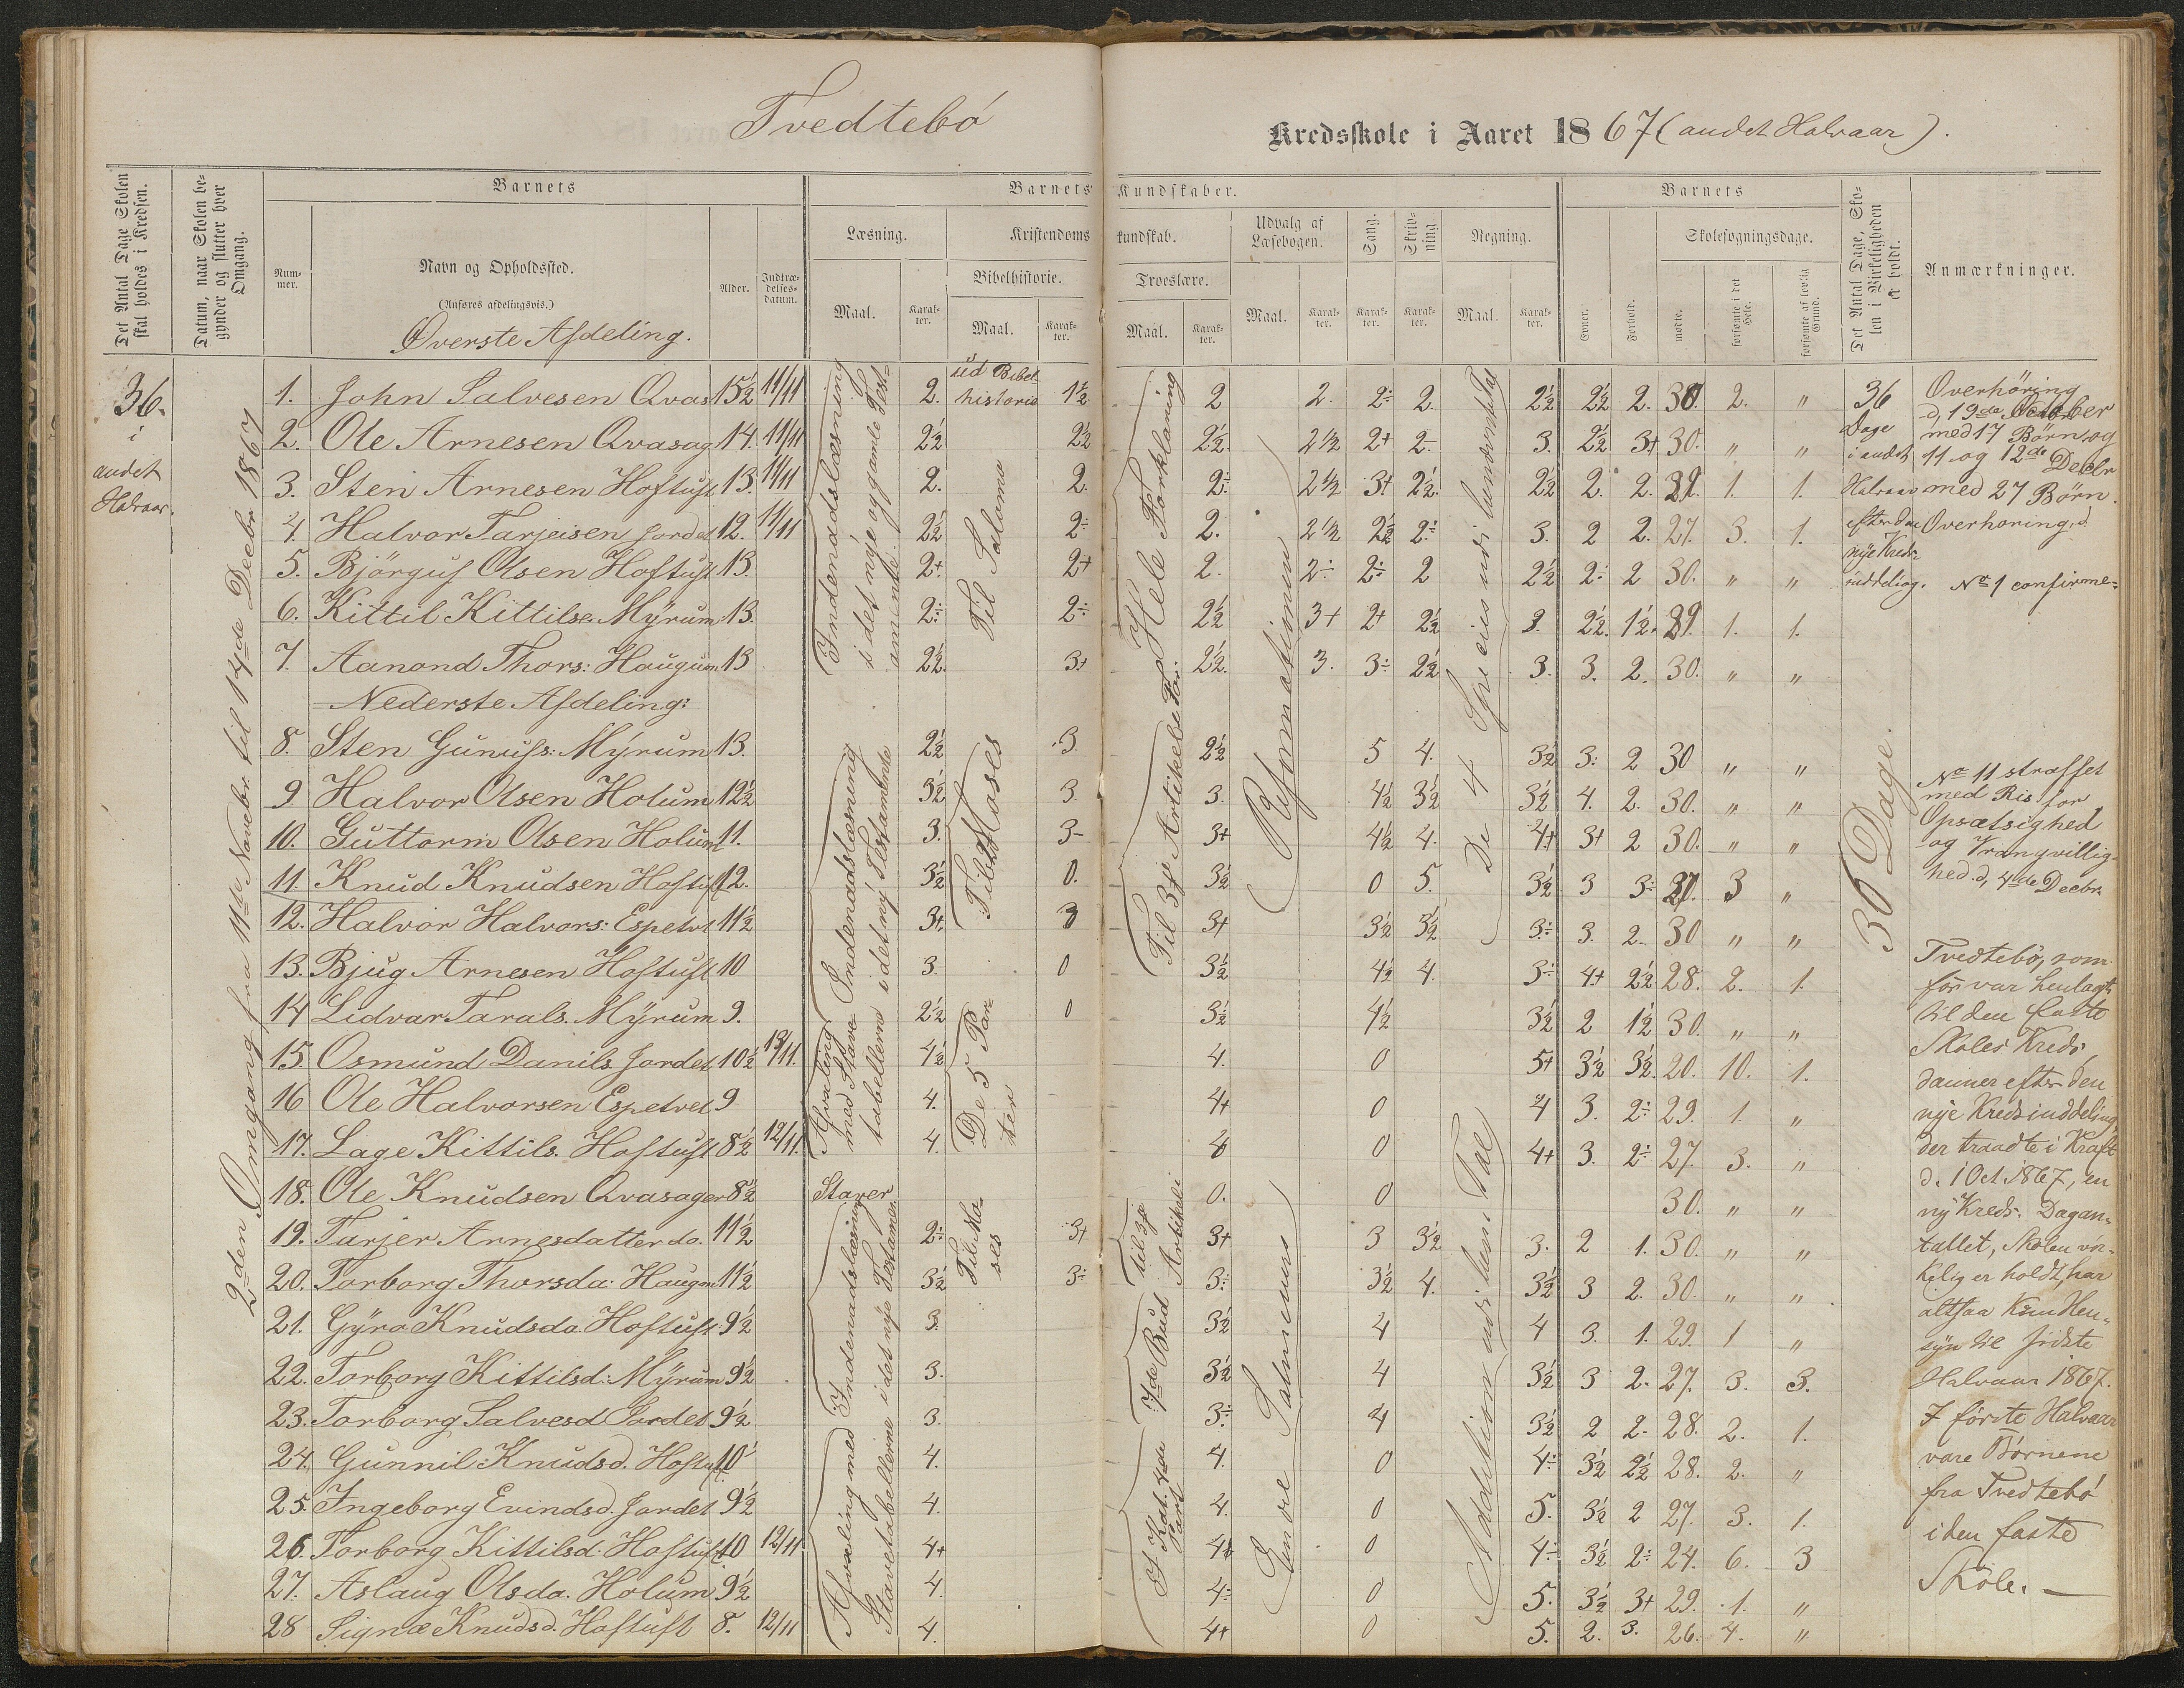 Tvedtebö Kredsskole i Aaret 1867 (andet Halvaar).
Det Antal Dage Skolen skal holdes i Kredsen.
Datum, naar Skolen begynder og slutter hver Omgang.
Barnets
Nummer.
Navn og Opholdssted.
(Anføres afdelingsvis.)
Alder.
Indtrædelsesdatum.
Barnets Kundskaber.
Læsning.
Maal.
Karakter.
Kristendomskundskab.
Bibelhistorie.
Maal.
Karakter.
Troeslære.
Maal.
Karakter.
Udvalg af Læsebogen.
Maal.
Karakter.
Sang.
Karakter.
Skrivning.
Karakter.
Regning.
Maal.
Karakter.
Barnets
Evner.
Forhold.
Skolesøgningsdage.
mødte.
forsømte i det Hele.
forsømte af lovlig Grund.
Det Antal Dage, Skolen i Virkeligheden er holdt.
Anmærkninger.
36.
i
andet
Halvaar.
2den Omgang fra 11te Novebr. til 14de Decbr 1867
Øverste Afdeling.
1. John Salvesen Qvas 15½ 11/11 2. 1½ 2 2. 2÷ 2 2½ 2½ 2. 30. 2. "
2. Ole Arnesen Qvasag 14. 11/11 2½ 2½ 2½ 2½ 2+ 2÷ 3. 2½ 3+ 30. " "
3. Sten Arnesen Hoftuft 13. 11/11 2. 2. 2÷ 2½ 3+ 2½ 2½ 2. 2. 29. 1. 1.
4. Halvor Tarjeisen Jordet 12. 11/11 2½ 2÷ 2. 2½ 2½ 2÷ 3. 2 2. 27. 3. 1.
5. Björguf Olsen Hoftuft 13. 2+ 2+ 2. 2÷ 2÷ 2 2½ 2÷ 2 30. " "
6. Kittil Kittilse. Myrum 13. 2÷ 2÷ 2½ 3+ 2+ 2½ 3. 2½ 1½ 29. 1. 1.
7. Aanond Thors: Haugum 13 2½ 3+ 2½ 3. 3÷ 2½ 3. 3. 2. 30. " "
Nederste Afdeling:
8. Sten Gunufs: Myrum 13. 2½ 3. 2½ 5 4. 3½ 3÷ 2 30 " "
9 Halvor Olsen Holum 12½ 3½ 3. 3. 4½ 3½ 3½ 4. 2. 30. " "
10. Guttorm Olsen Holum 11. 3. 3- 3+ 4½ 4. 4+ 3+ 2 30. " "
11. Knud Knudsen Hoftuft 12. 3½ 0. 3½ 0 5. 3½ 3 3÷ 27. 3 "
12. Halvor Halvors: Espetvt 11½ 3+ 3 3+ 3½ 3½ 3÷ 3. 2. 30 " "
13. Bjug Arnesen Hoftuft 10 3. 0 3½ 4½ 4. 3÷ 4+ 2½ 28. 2. 1.
14 Lidvar Tarals. Myrum 9. 2½ 0 3½ 4½ 3½ 2 1½ 30. " "
15. Osmund Danils Jordet 10½ 13/11. 4½ 4. 0 5+ 3½ 3½ 20. 10. 1.
16 Ole Halvorsen Espetvet 9 4. 4+ 0 4 3. 2÷ 29. 1. "
17. Lage Kittils. Hoftuft 8½ 12/11. 4. 0 4+ 3. 2÷ 27. 3. "
18. Ole Knudsen Qvasager 8½ Staver 0. 0 30. " "
19. Tarjer Arnesdatter do. 11½ 2÷ 3+ 3+ 3 3½ 3. 2 1. 30. " "
20. Torborg Thorsda: Haugm 11½ 3½ 3÷ 3÷ 3½ 4. 3½ 3 2. 30. " "
21. Gyro Knudsda. Hoftuft 9½ 3. 3½ 4 4 3. 1. 29. 1 "
22. Torborg Kittilsd: Myrum 9½ 3. 3½ 4 3½ 3 2. 27. 3. 3.
23. Torborg Salvesd Jordet 9½ 3. 3÷ 4 3½ 2 2. 28. 2. 1.
24. Gunnil Knudsd. Hoftuft 10 4. 4. 0 4÷ 3½ 2½ 28. 2. "
25. Ingeborg Evindsd. Jordet 9½ 4. 4. 0 5. 3½ 2 27. 3. 1.
26. Torborg Kittilsd: Hoftuft 10 12/11 4+ 0 4÷ 3½ 2÷ 24. 6. 3
27. Aslaug Olsda. Holum 9½ 4. 4÷ 0 5. 3½ 3+ 29. 1. "
28 Signe Knudsd. Hoftuft 8. 12/11 4. 4+ 0 5. 2. 3. 26. 4. "
Indenadslæsning
i det nye og gamle Testamente.
Indenadslæsning
i det ny Testamente
Afvæling
med Stavetabellerne
Indenadslæsning
i det nye Testamen.
Afvæling med
Stavetabellerne
ud Bibel-
historie
Til Salomo
Til Moses
De 5 Parter
Til Moses
Hele Forklaring
Til 3die Artikel
Til 3die Artikel
7de Bud
4de Part
Reformationen
Endre Salmevers
De 4 Species
Addition udi hun Tal
36
Dage
i andet
Halvaar
efter den
nye Kreds-
inddeling.
36 Dage.
Overhöring
d. 19de October
med 17 Börn, og
11 og 12de Decbr
med 27 Börn.
Overhöring, d.
No 1 confirme-
No 11 straffet
med Ris for
Opsætsighed
og Vrangvillig-
hed d, 4de Decbr.
Tvedtebö, som
för var henlagt
til den faste
Skoles Kreds
danner efter den
nye Kredsinddeling,
der traadte i Kraft
d. 1 Oct. 1867, en
ny Kreds. Dagan-
tallet, Skolen vir-
kelig er holdt, har
altsaa kun Hen-
syn til sidste
Halvaar 1867.
I förste Halvaar
vare Börnene
fra Tvedtebö
i den faste
Skole. —